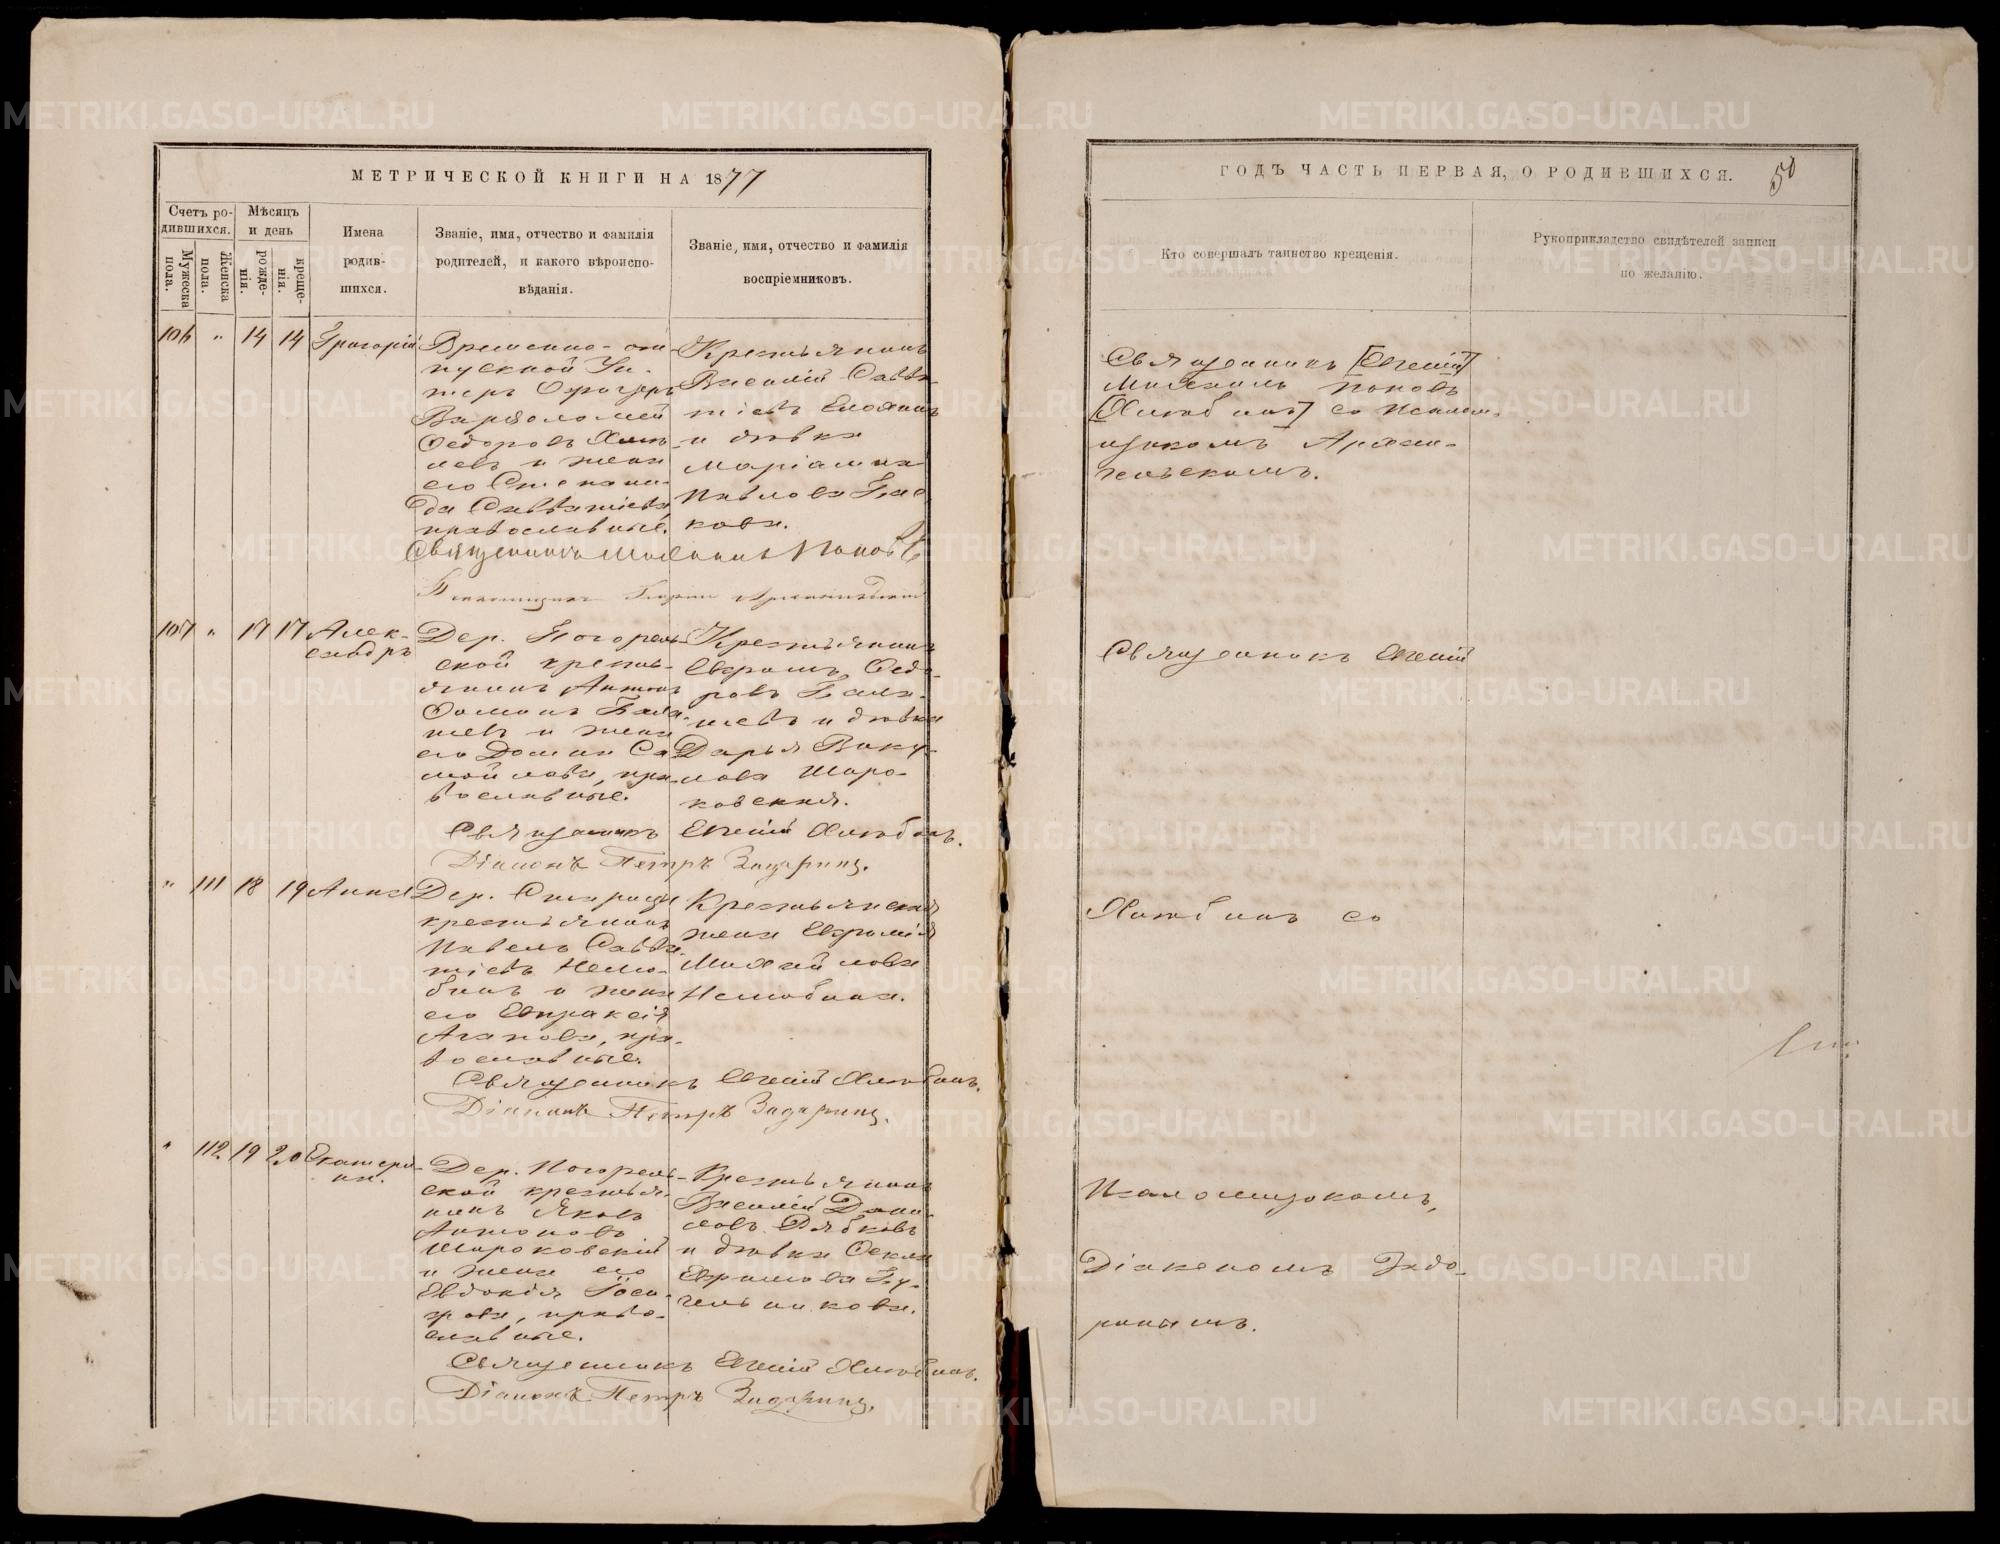 МЕТРИЧЕСКОЙ КНИГИ НА 1877
Счетъ ро-
дившихся.
Мужеска
пола.
Женска
пола.
Мѣсяцъ
и день
рожде-
нія.
креще-
нія.
Имена
родив-
шихся.
Званіе, имя, отчество и фамилія
родителей, и какого вѣроиспо-
вѣданія.
Званіе, имя, отчество и фамилія
воспріемниковъ.
106 " 14 14 Григорій
Временно-от-
пускной Ун-
теръ Офицеръ
Варѳоломей
Ѳедоровъ
и жена
его Степани-
да Савватіева
православные.
Крестьянинъ
Василій Савва-
тіевъ
и дѣвка
Маріамна
Павлова
кова.
Священникъ Михаилъ Поповъ
Псаломщикъ
107 " 17 17 Алек-
сандръ
Дер. Погорѣль-
ской кресть-
янинъ Антонъ
Ѳоминъ
и жена
его Домна Са-
мойлова, пра-
вославные.
Крестьянинъ
Ефремъ Ѳедо-
ровъ
и дѣвка
ДарьяВаку-
лова Широ-
ковская.
Священникъ Евгеній Хлѣбинъ.
Діаконъ Петръ Задоринъ.
" 111 18 19 Анна
Дер.
крестьянинъ
Павелъ Савва-
тіевъ Нелю-
бинъ и жена
его Евпраксія
Агапова, пра-
вославные.
Крестьянская
жена Евфимія
Михайлова
Нелюбина.
Священникъ Евгеній Хлѣбинъ.
Діаконъ Петръ Задоринъ.
" 112 19 20 Екатери-
на.
Дер. Погорѣль-
ской крестья-
нинъ Яковъ
Антоновъ
Широковскій
и жена его
Евдокія
православные.
Крестьянинъ
Василій Дани-
ловъ Рябковъ
и дѣвка Ѳекла
Ефимова
Священникъ Евгеній Хлѣбинъ.
Діаконъ Петръ Задоринъ.
ГОДЪ ЧАСТЬ ПЕРВАЯ, О РОДИВШИХСЯ. 50
Кто совершалъ таинство крещенія.
Рукоприкладство свидѣтелей записи
по желанію.
Священникъ [Евгеній]
Михаилъ Поповъ
[Хлѣбинъ] со Псалом-
щикомъ
Священникъ Евгеній
Хлѣбинъ со
Псаломщикомъ,
Діакономъ Задо-
ринымъ.
METRIKI.GASO-URAL.RU